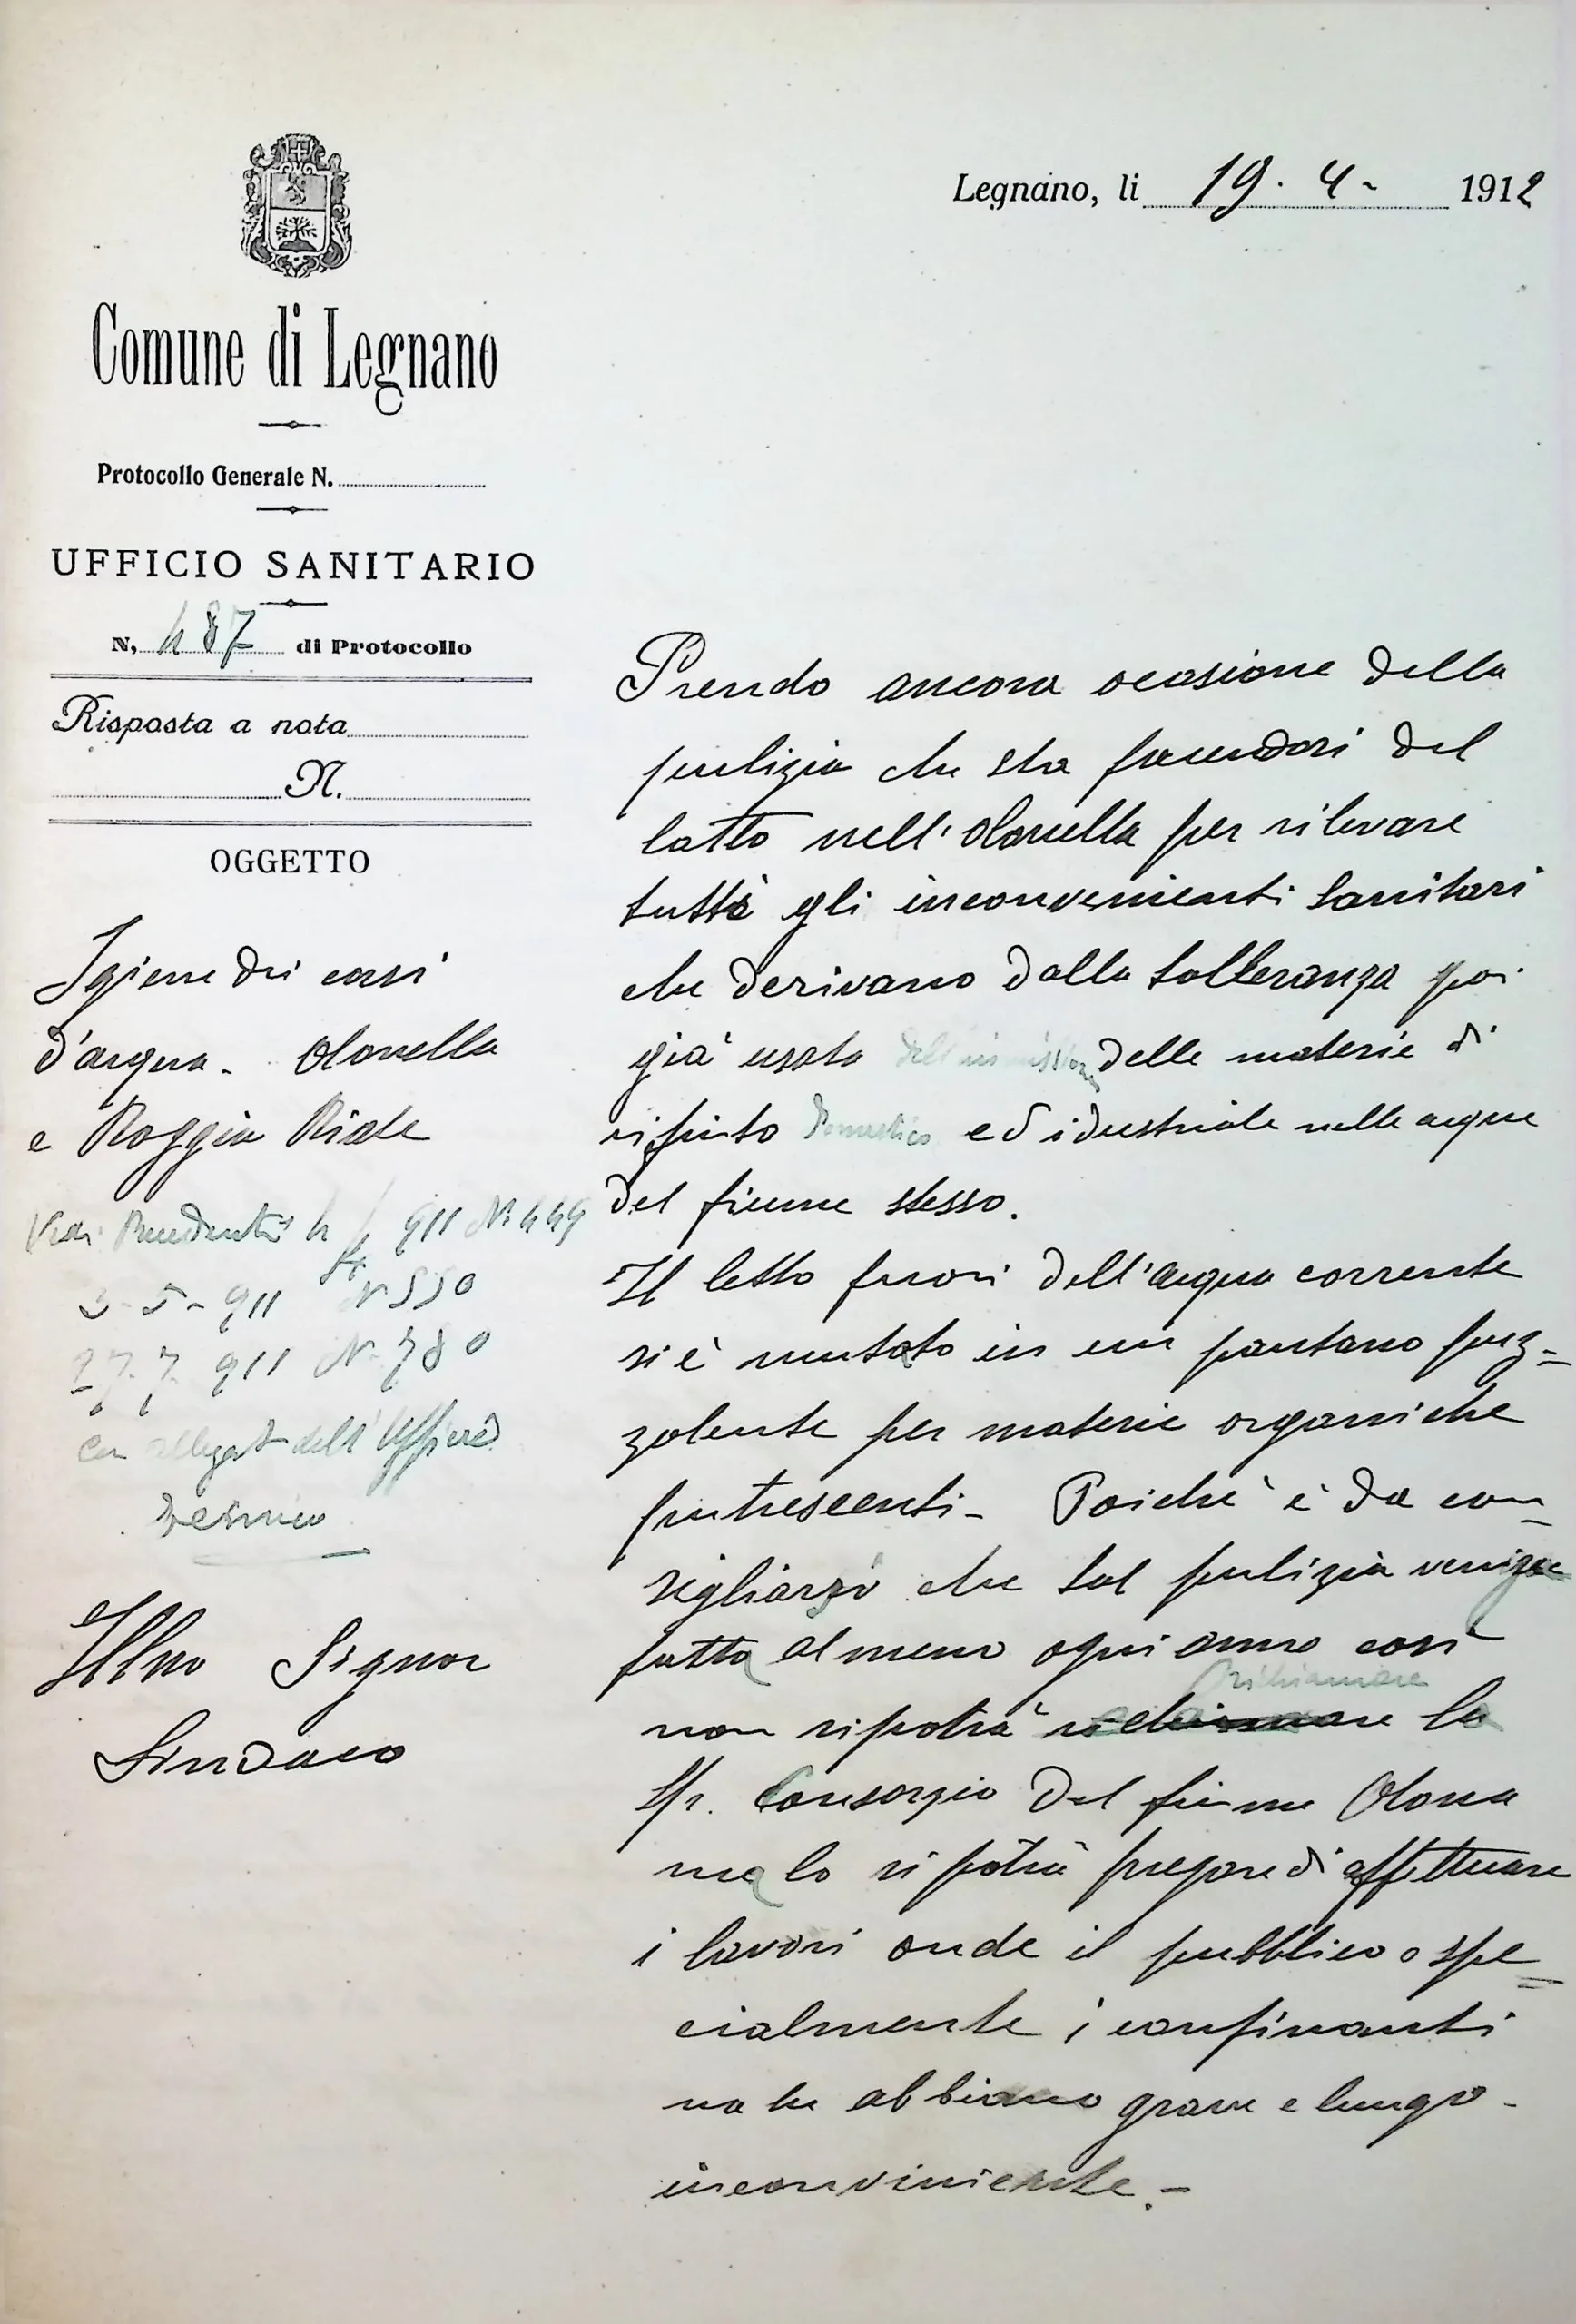 Legnano, li 19. 4- 1912
Comune di Legnano
Protocollo Generale N.
UFFICIO SANITARIO
N, 487 di Protocollo
Risposta a nota
N.
OGGETTO
Igiene dei corsi
d'acqua - Olonella
e Roggia Riale
Vedi Precedenti 911 N. 449
3-5-911 N 550
27.7.911 N. 780
con allegati dell'Ufficio
Tecnico
Illmo Signor
Sindaco
Prendo ancora ocasione della
pulizia che sta facendosi del
latto nell'Olonella per rilevare
tutti gli inconvenienti sanitari
che derivano dalla tolleranza poi
già usata dell'immissione delle materie di
rifiuto domestico ed idustriale nelle acque
del fiume stesso.
Il letto fuori dell'acqua corrente
si è mutato in un pantano puz=
zolente per materie organiche
putrescenti - Poichè è da con=
sigliarsi che tal pulizia venga
fatta almeno ogni anno così
richiamare
non si potrà la
Sp. Consorzio del fiume Olona
ma lo si potrà pregare di affettuare
i lavori onde il pubblico o spe=
cialmente i confinanti
na le abbiano grave e lungo -
inconviniente. -